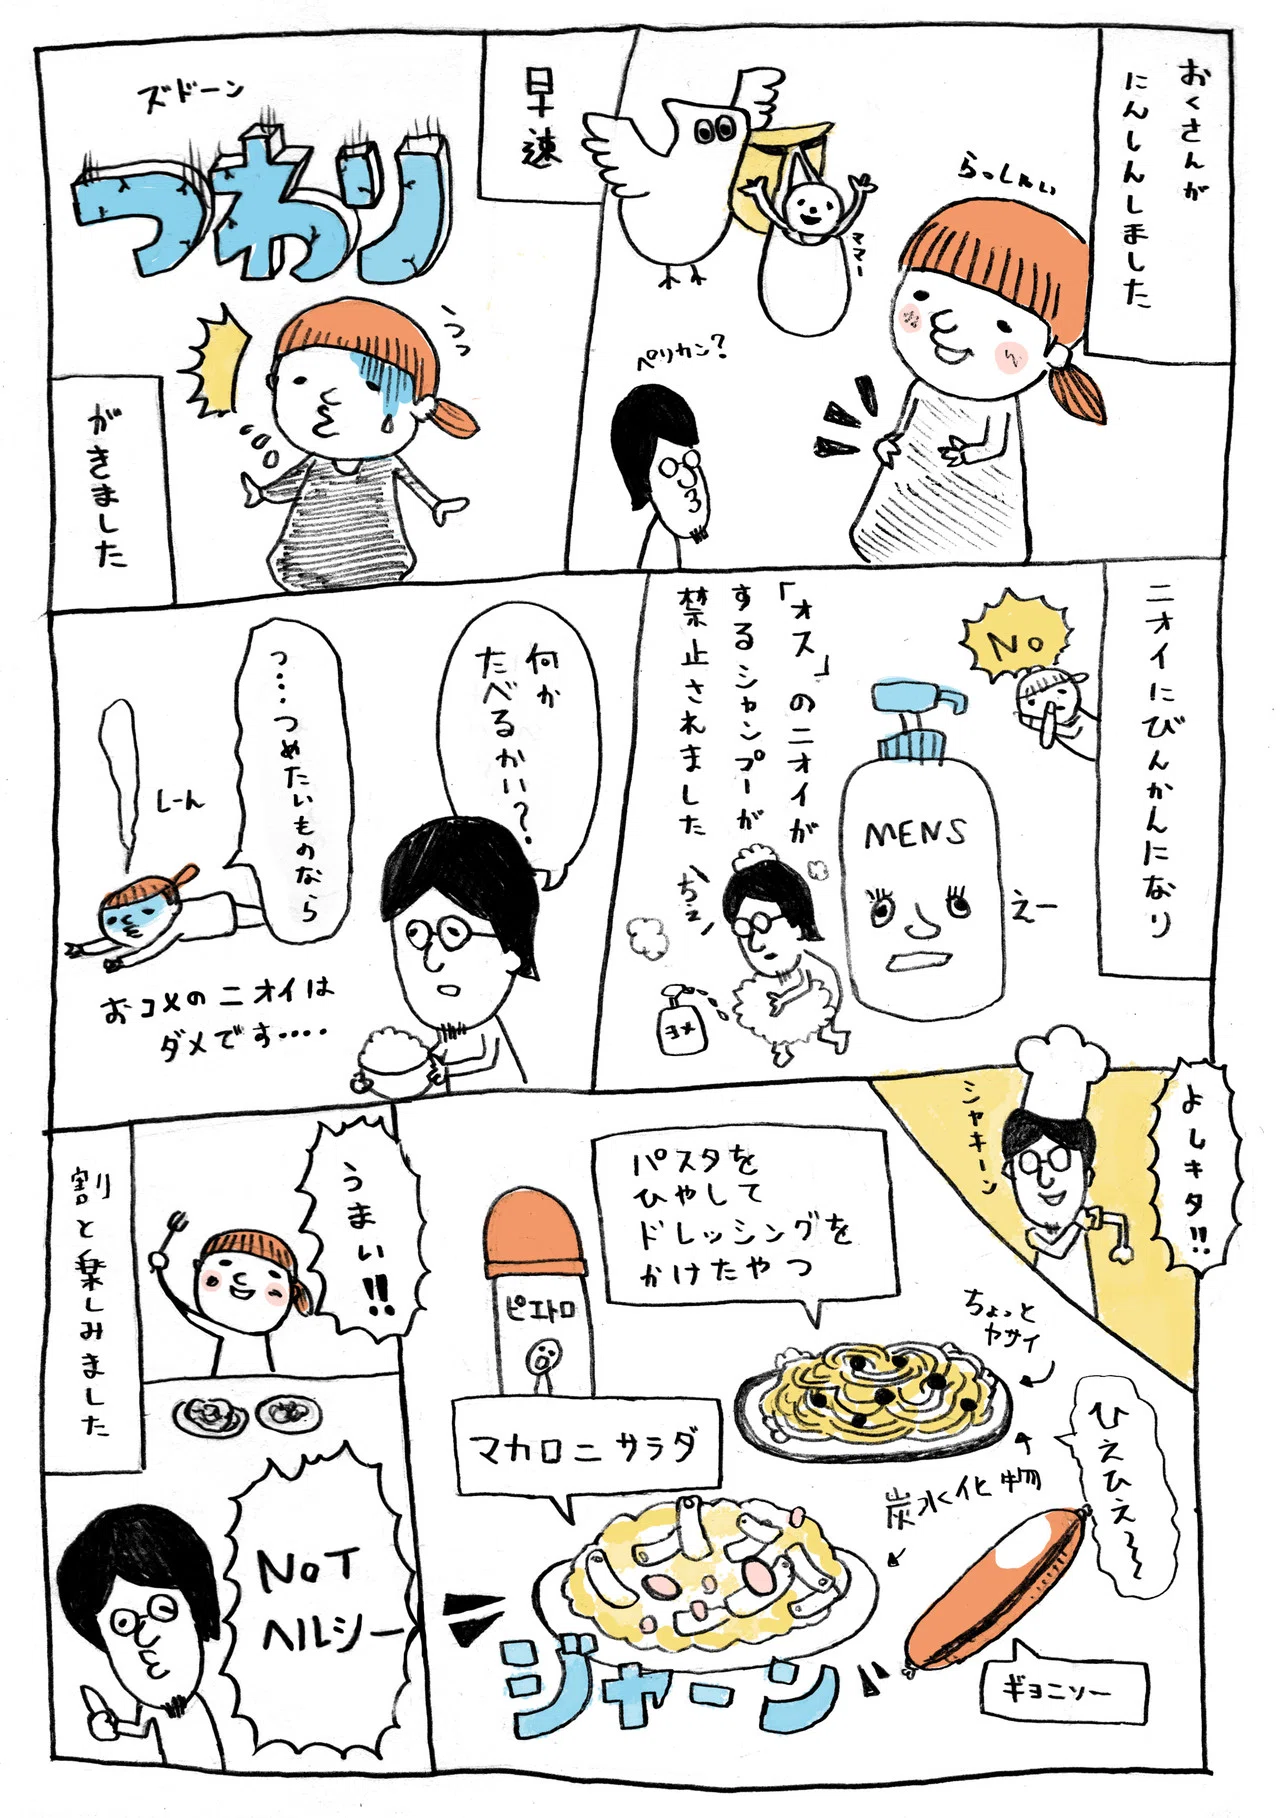 おくさんが
にんしんしました
らっしゃい
ママー
ペリカン?
早速
ズドーン
つわり
うっ
がきました
ニオイにびんかんになり
NO
MENS
えー
「オス」のニオイが
するシャンプーが
禁止されました
ちぇ
ヨメ
何か
たべるかい?
っ…つめたいものなら
しーん
おコメのニオイは
ダメです….
よしキタ!!
シャキーン
パスタを
ひやして
ドレッシングを
かけたやつ
ピエトロ
ちょっと
ヤサイ
マカロニサラダ
炭水化物
ひえひえ〜
ギョニソー
ジャーン
うまい!!
割と楽しみました
NOT
ヘルシー